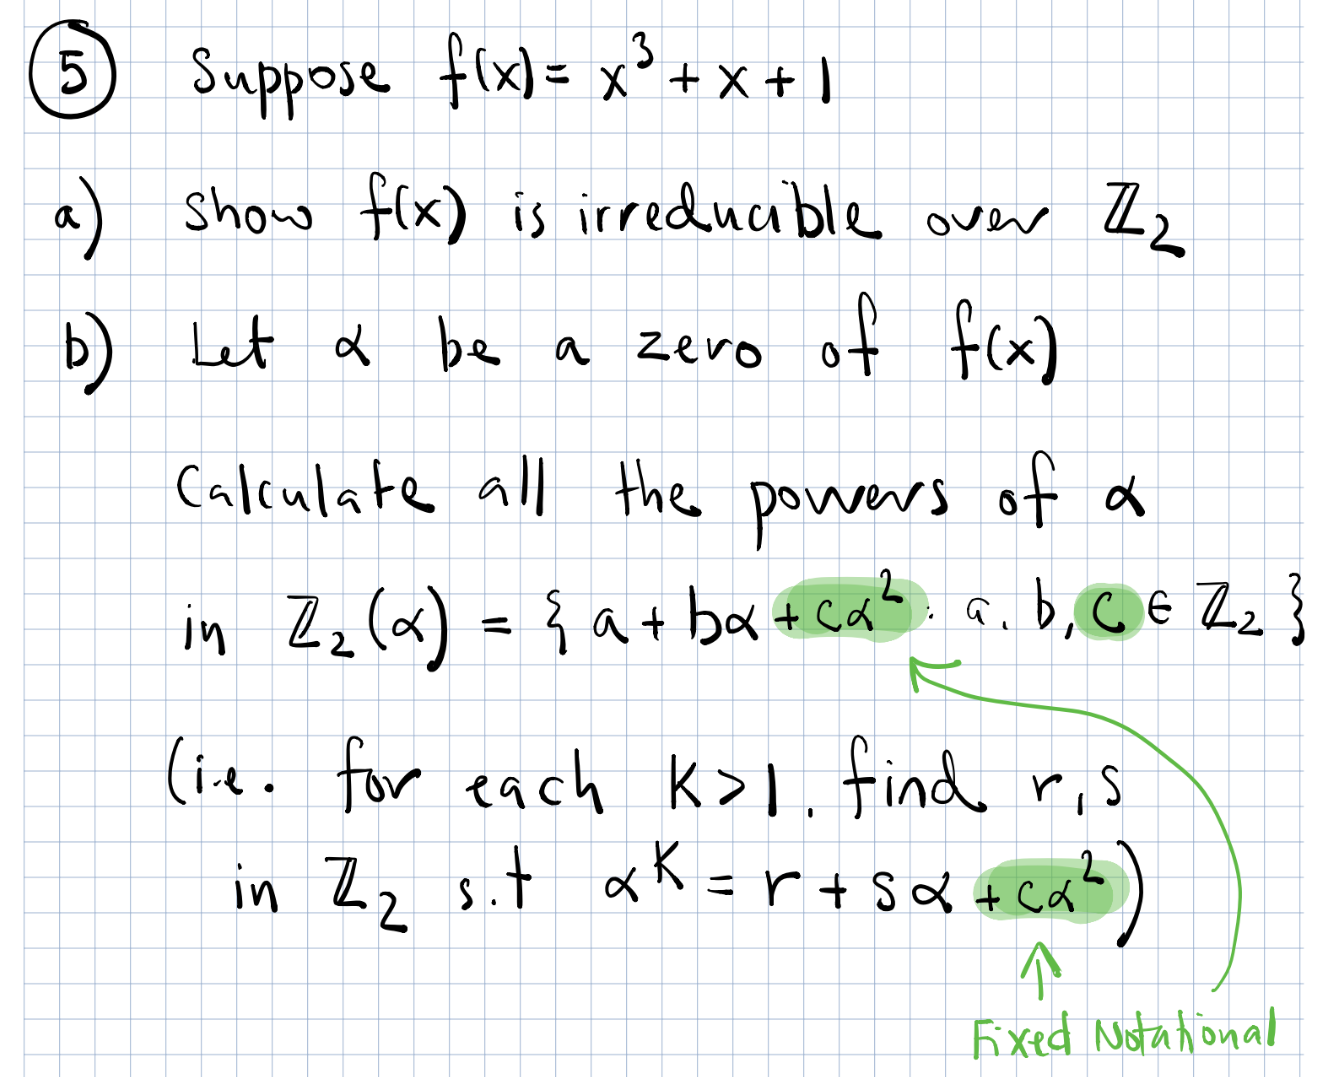 5 Suppose f(x) = x³ + x + 1
a) Show f(x) is irreducible over ℤ₂
b) Let α be a zero of f(x)
Calculate all the powers of α
in ℤ₂(α) = { a + bα + cα² : a, b, c ∈ ℤ₂ }
(i.e. for each K > 1, find r, s
in ℤ₂ s.t α^K = r + sα + cα²)
Fixed Notational